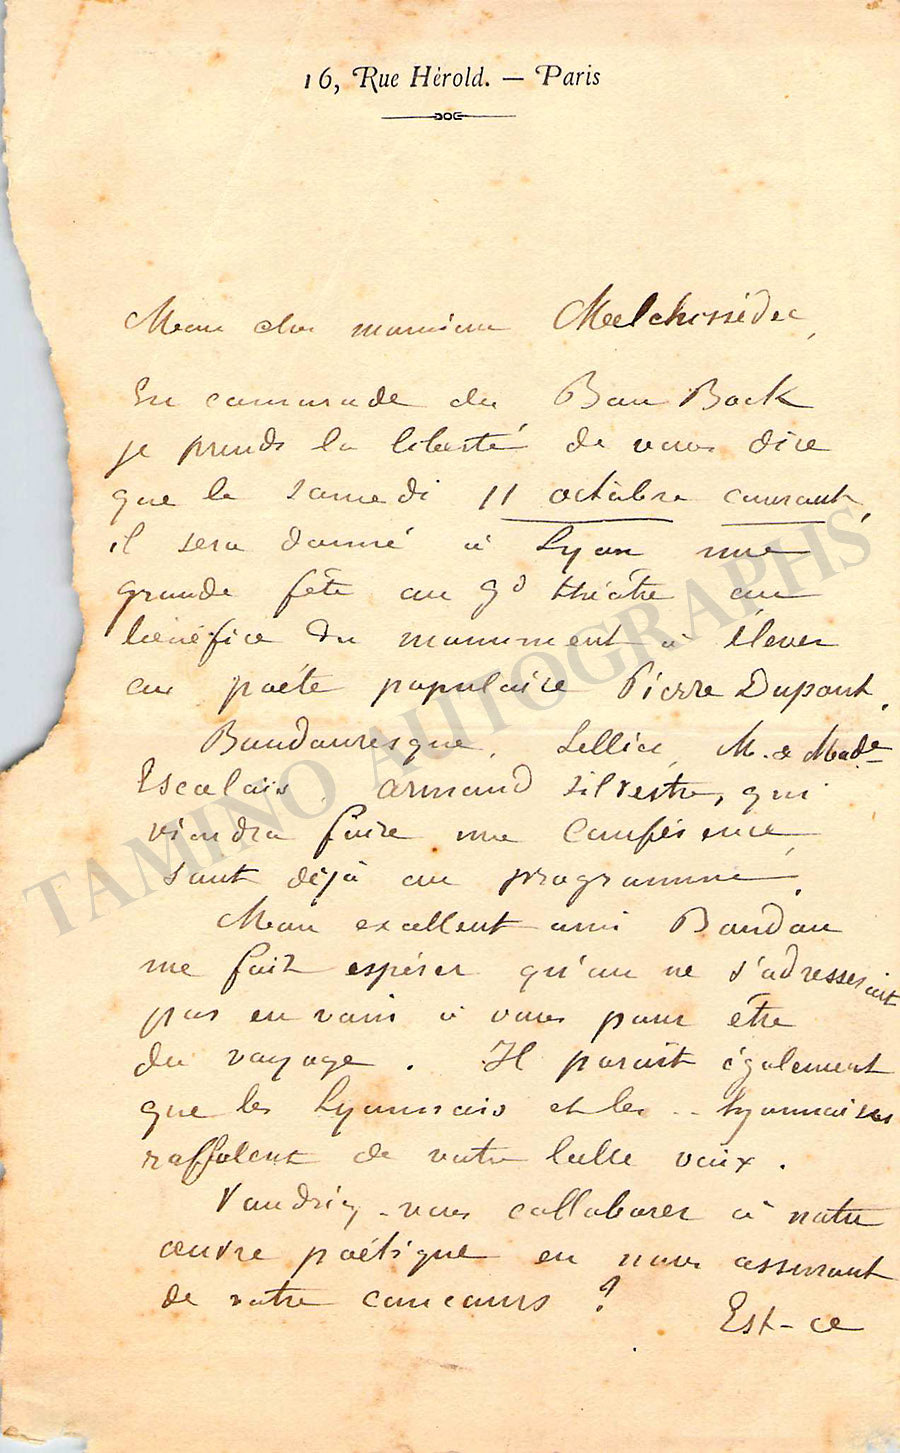 16, Rue Hérold. — Paris
Mon cher monsieur Melchissédec,
En camarade du Bon Bock
je prends la liberté de vous dire
que le samedi 11 octobre courant,
il sera donné à Lyon une
grande fête au gd théâtre au
bénéfice du monument à élever
au poète populaire Pierre Dupont.
Baudouresque, Sellier, M. & Made
Escalaïs, Armand Silvestre, qui
viendra faire une conférence,
sont déjà au programme.
Mon excellent ami Bourdon
me fait espérer qu'on ne s'adresserait
pas en vain à vous pour être
du voyage. Il paraît également
que les Lyonnais et les .. Lyonnaises
raffolent de votre belle voix.
Voudriez-vous collaborer à notre
œuvre poétique en nous assurant
de votre concours ?
Est-ce
TAMINO AUTOGRAPHS